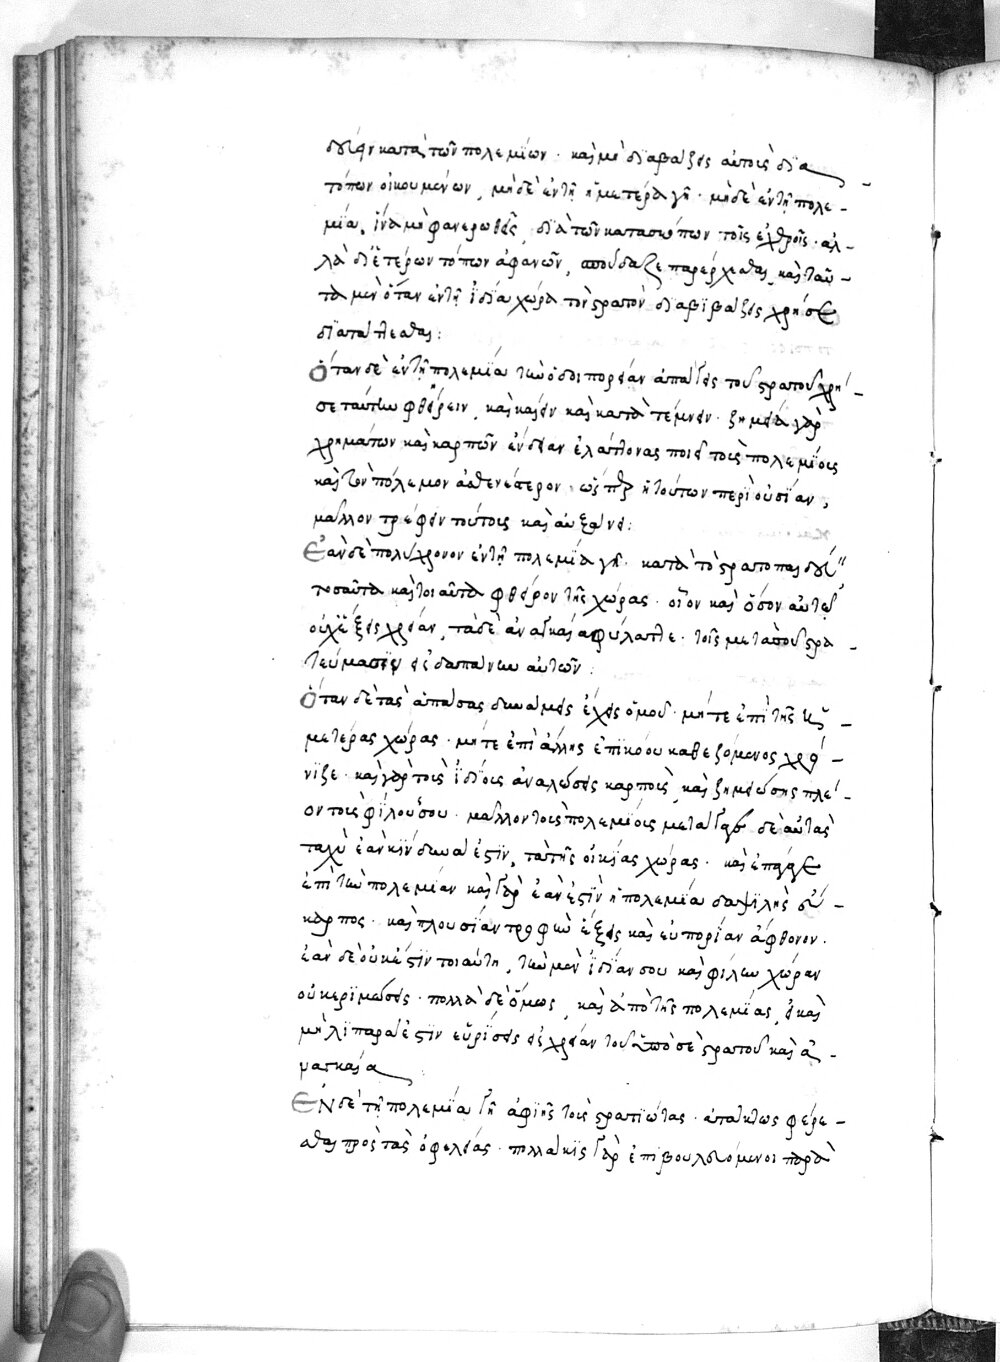 δυίην κατὰ τῶν πολεμίων · καὶ μὴ διαβάζης αὐτοὺς δϊα
τόπων οἰκουμένων, μηδὲ ἐν τῆ ἡμετέρα γῆ · μηδὲ ἐν τῆ πολε-
μία, ἵνα μὴ φανερωθῆς, διὰ τῶν κατασκόπων τοῖς ἐχθροῖς · ἀλ-
λὰ δι' ἑτέρων τόπων ἀφανῶν, σπούδαζε παρέρχεσθαι, καὶ ταῦ-
τα μὲν ὅταν ἐν τῆ ἰδία χώρα τὸν στρατὸν διαβιβάζης χρήσε
διαπλέσθαι:
Ὅταν δὲ ἐν τῆ πολεμία τὴν ὁδοιπορείαν ἀπαιτῆς τοῦ στρατοῦ χρή-
σε ταύτην φθείρειν, καὶ καίειν καὶ κατατέμνειν · ζημία γὰρ
χρημάτων καὶ καρπῶν ἔνδειαν ἐλάττονας ποιεῖ τοὺς πολεμίους
καὶ τὸν πόλεμον ἀσθενέστερον · ὥσπερ ἡ τούτων περιουσίαν,
μᾶλλον τρέφειν τούτοις καὶ αὐξάνει:
Ἐὰν δὲ πολύχρονον ἐν τῆ πολεμία γῆ · κατὰ τὸ στρατοπαιδεύ"
τοσαῦτα καὶ τοιαῦτα φθεῖρον τῆς χώρας · οἷον καὶ ὅσον αὐτῆς
οὐχ ἕξεις χρείαν, τὰ δὲ ἀναγκαῖα φύλαττε · τοῖς μετὰ σοῦ στρα-
τεύμασιν εἰς δαπάνην αὐτῶν:
Ὅταν δὲ τὰς ἁπάσας δυνάμεις ἔχεις ὁμοῦ · μήτε ἐπὶ τῆς ἡ-
μετέρας χώρας · μήτε ἐπὶ ἄλλης ἐπικόου καθεζόμενος χρό-
νϊζε · καὶ γὰρ τοὺς ἰδίους ἀναλώσεις καρποὺς, καὶ ζημιώσης πλεῖ-
ον τοὺς φίλους σου · μᾶλλον τοὺς πολεμίους μετάγαγε δὲ αὐτὰς
ταχὺ ἐὰν κϊνδυναι ἐστὶν, τὰ τῆς οἰκίας χώρας · καὶ ἔπαγε
ἐπὶ τὴν πολεμίαν καὶ γὰρ ἐὰν ἐστὶν ἡ πολεμία δαψιλὴς εὔ-
καρπος · καὶ πλουσίαν τροφὴν ἕξεις καὶ εὐπορίαν ἄφθονον ·
ἐὰν δὲ οὐκ ἐστὶν τοιαύτη, τὴν μὲν ἰδίαν σου καὶ φίλην χώραν
οὐκ ἐριμώσεις · πολλὰ δὲ ὅμως, καὶ ἀπὸ τῆς πολεμίας, εἰ καὶ
μὴ λϊπαρά ἐστϊν εὑρίσεις εἰς χρείαν τοῦ ὑπὸ σὲ στρατοῦ καὶ ἀ-
ναγκαῖα
Ἐν δὲ τῆ πολεμία γῆ ἀφίης τοὺς στρατιώτας · ἀτάκτως φέρε-
σθαι πρὸς τὰς ὀφελείας · πολλάκϊς γὰρ ἐπιβουλευόμενοι παρὰ